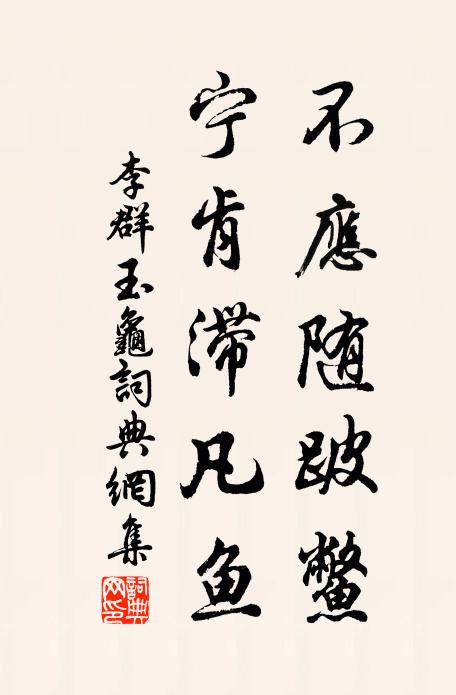 不應随跛鱉
宁肯滞凡鱼
李群玉龜詞典網集
詞典網印